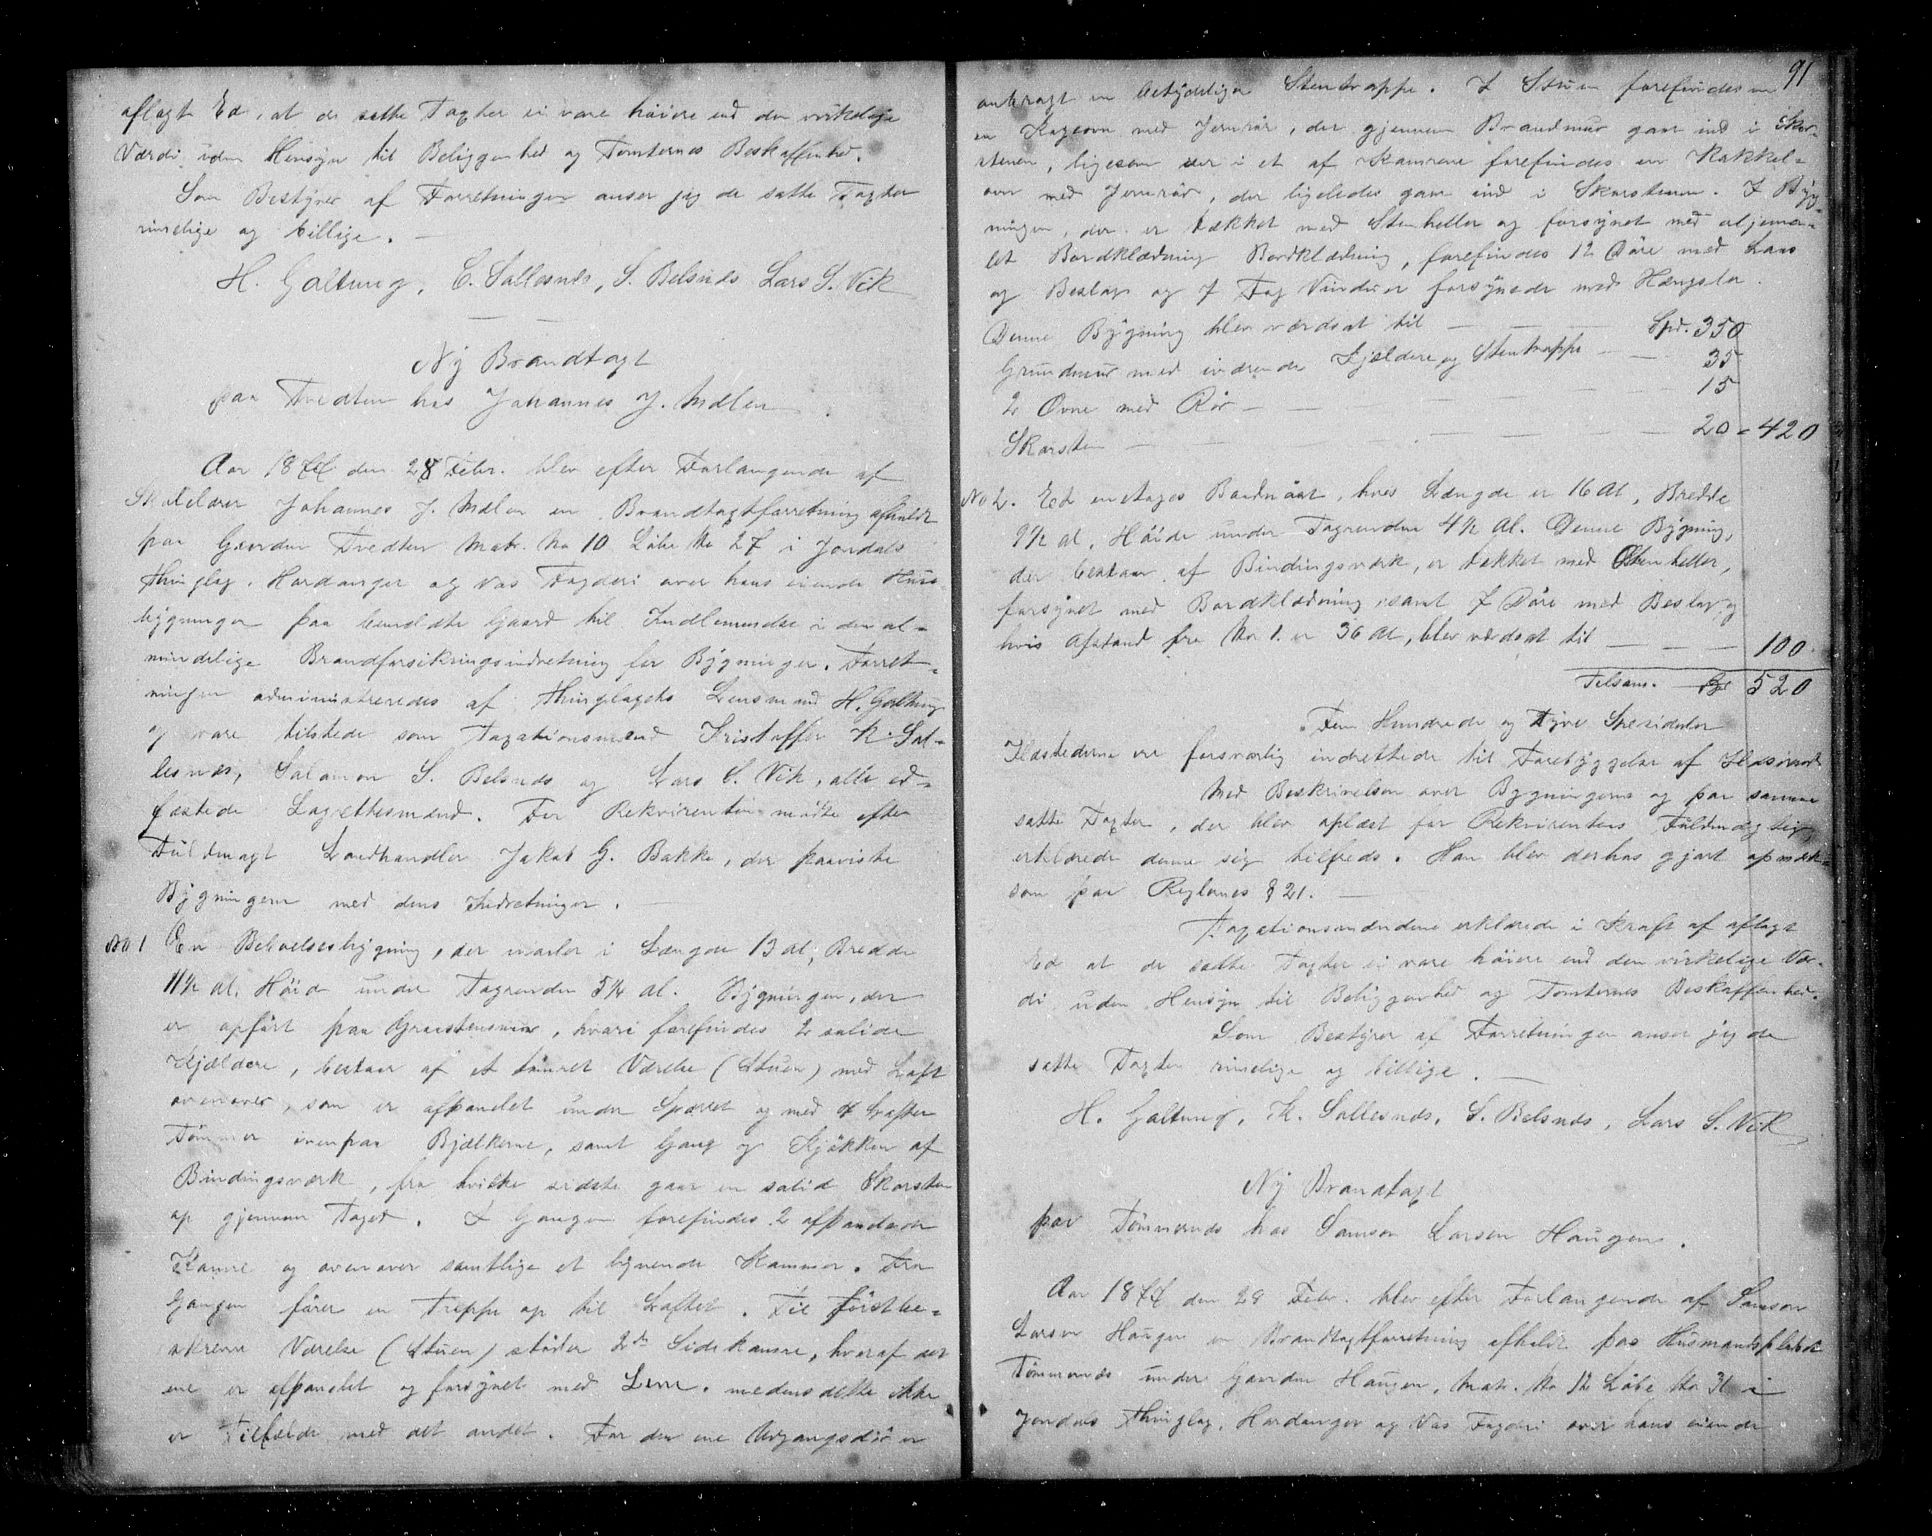 aflagt Ed, at de satte Taxter ei vare høiere end den virkelige
Værdi uden Hensyn til Beliggenhed og Tomternes Beskaffenhed.
Som Bestyrer af Forretningen anser jeg de satte Taxter
rimelige og billige.
H. Galtung, C. Sallesnds, S. Belsnds Lars S. Vik
Ny Brandtaxt
paa Tredten hos Johannes J. Mælen
Aar 1877 den 28 Febr. blev efter Forlangende af
Johannes J. Mælen en Brandtaxtforretning afholdt
paa Gaarden Tredten Matr. No 10 Løbe No 27 i Jondals
Thinglag, Hardanger og Vos Fogderi over hans eiende Huus-
bygninger paa bemeldte Gaard til Indlemmelse i den al-
mindelige Brandforsikringsindretning for Bygninger. Forret-
ningen administreredes af Thinglagets Lensmand H. Galtung
og vare tilstede som Taxationsmænd Kristoffer K. Sal-
lesnds, Salamon S. Belsnds og Lars S. Vik, alle ed-
fæstede Lagrettesmænd. For Rekvirenten mødte efter
Fuldmagt Landhandler Jakob G. Bakke, der paaviste
Bygningerne med dens Indretninger.
No 1 En Beboelsesbygning, der maaler i Længde 13 Al, Bredde
11½ Al, Høide under Tagrenden 5¼ Al. Bygningen, der
er opført paa Graastensmur, hvori forefindes 2 solide
Kjældere, bestaar af et tømret Værelse (Stuen) med Loft
ovenover, som er afpanelet under Sparret og med 4 Omfar
Tømmer ovenpaa Bjælkerne, samt Gang og Kjøkken af
Bindingsværk, fra hvilke sidste gaar en solid Skorsten
op gjennem Taget. I Gangen forefindes 2 afpanelede
Kamre og ovenover samtlige et lignende Kammer. Fra
Gangen fører en Treppe op til Loftet. Til førstbe-
skrevne Værelse (Stuen) støder 2de Sidekamre, hvoraf det
ene er afpanelet og forsynet med medens dette ikke
er Tilfælde med det andet. For den ene Udgangsdør er
91
anbragt en betydelige Stentrappe. I Stuen forefindes
en Kogeovn med Jernrør, der gjennem Brandmur gaar ind i Skor-
stenen, ligesom der i et af Kamrene forefindes en Kakkel-
ovn med Jernrør, der ligeledes gaar ind i Skorstenen. I Byg-
ningen, der er tækket med Stenheller og forsynet med
Bordklædning Bordklædning, forefindes 12 Døre med Laas
og Beslag og 7 Fag Vinduer forsynede med Hængsler.
Denne Bygning blev værdsat til — Spd. 350
Grundmur med indrende Kjældere og Stentrappe — 35
2 Ovne med Rør — 15
Skorsten — 20 = 420
No 2. Et enetages Baadnøst, hvis Længde er 16 Al, Bredde
9½ Al, Høide under Tagrenden 4½ Al. Denne Bygning,
der bestaar af Bindingsværk, er tækket med Stenheller,
forsynet med Bordklædning samt 7 Døre med Beslag, og
hvis Afstand fra No 1. er 36 Al, blev værdsat til — 100
Tilsam. 520
Fem Hundrede og Tyve Speciedaler
Ildstederne ere forsvarlig indrettede til Forebyggelse af Ildsvaade
Med Beskrivelsen over Bygningerne og paa samme
satte Taxter, der blev oplæst for Rekvirentens Fuldmægtig
erklærede denne sig tilfreds. Han blev derhos gjort opmærk-
som paa Reglernes § 21.
Taxationsmændene erklærede i Kraft af aflagt
Ed at de satte Taxter ei vare høiere end den virkelige Vær-
di uden Hensyn til Beliggenhed og Tomternes Beskaffenhed.
Som Bestyrer af Forretningen anser jeg de
satte Taxter rimelige og billige.
H. Galtung, K. Sallesnds, S. Belsnds, Lars S. Vik
Ny Brandtaxt
paa Tømmernds hos Samson Larsen Haugen.
Aar 1877 den 28 Febr. blev efter Forlangende af Samson
Larsen Haugen en Brandtaxtforretning afholdt paa Husmandspladsen
Tømmernds under Gaarden Haugen, Matr. No 12 Løbe No 31 i
Jondals Thinglag, Hardanger og Vos Fogderi over hans eiende